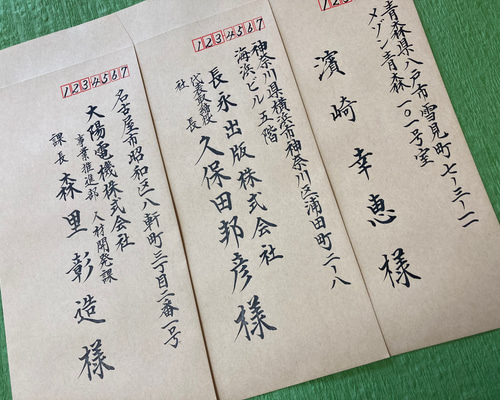 1234567
青森県八戸市雪見町七-三-一一
メゾン青森一〇一号室
濱崎幸恵様
1234567
神奈川県横浜市神奈川区浦田町二-八
海浜ビル五階
長永出版株式会社
代表取締役
社長
久保田邦彦様
1234567
名古屋市昭和区八軒町三丁目二番一号
大陽電機株式会社
事業推進部 人材開発課
課長 森里彰造様